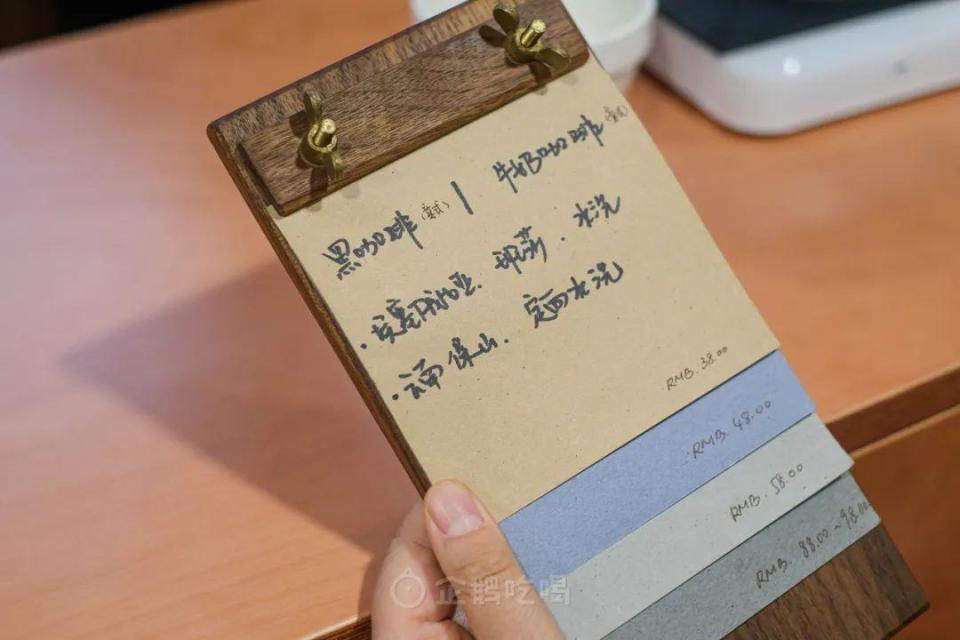 黑咖啡(意式) | 牛奶咖啡(意式)
·埃塞俄比亚. 水洗
·云南 保山. 水洗
RMB. 38.00
RMB. 48.00
RMB. 58.00
RMB. 88.00~98.00
企鹅吃喝